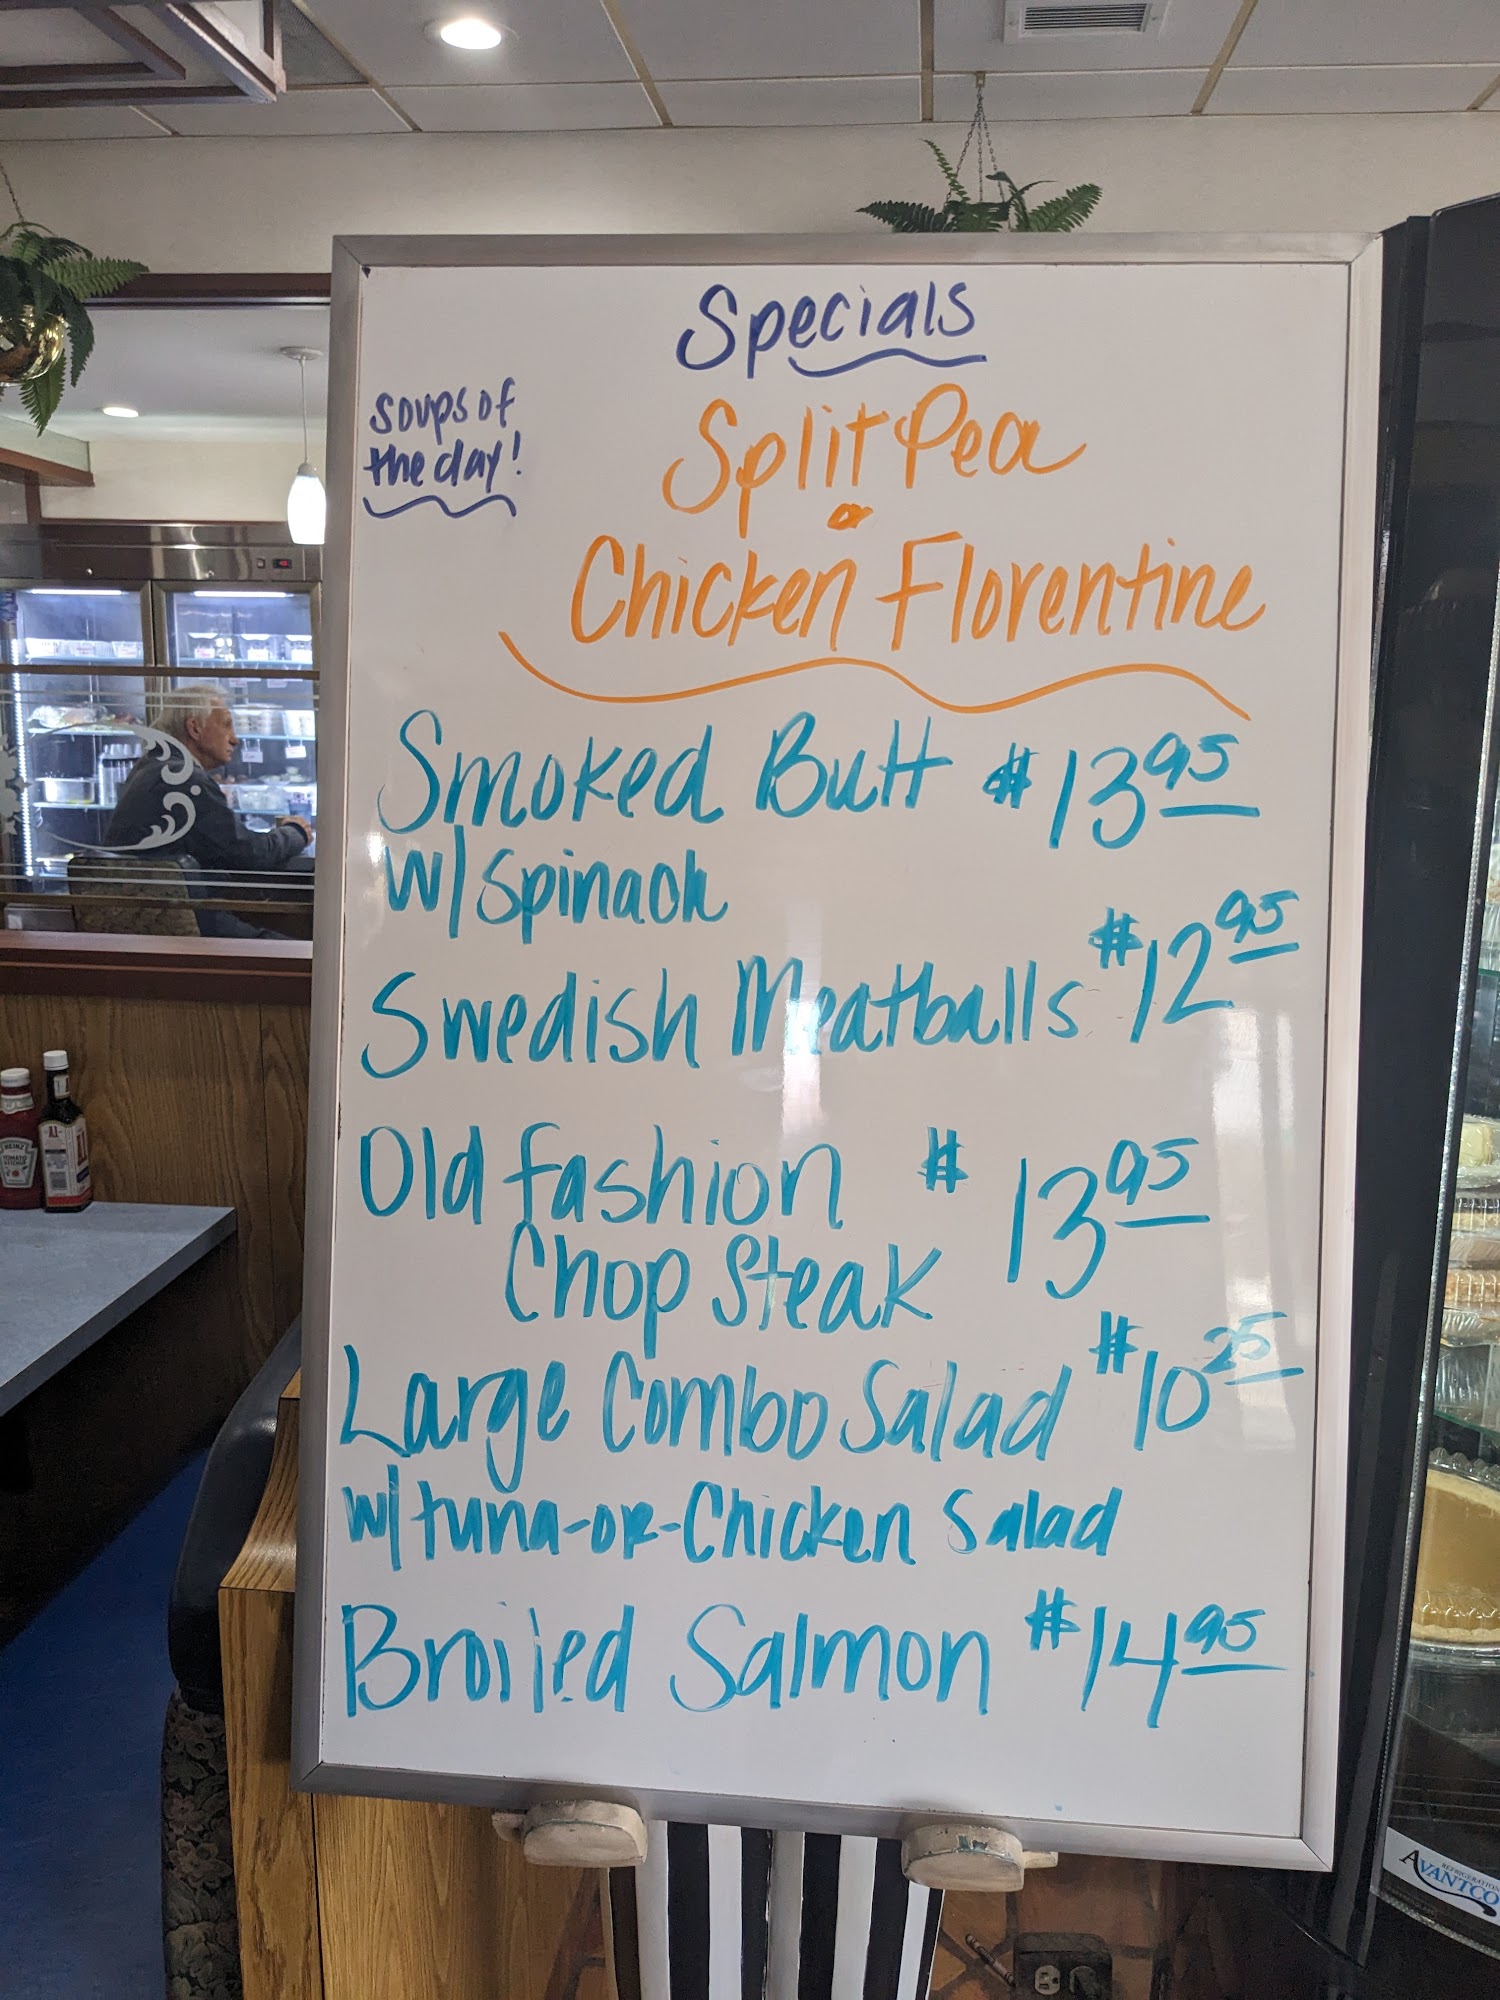 Specials
Soups of
the day!
Split Pea
or
Chicken Florentine
Smoked Butt $13.95
w/ Spinach
Swedish Meatballs $12.95
Old Fashion $13.95
Chop Steak
Large Combo Salad $10.25
w/ tuna-or-Chicken Salad
Broiled Salmon $14.95
HEINZ
TOMATO
KETCHUP
REFRIGERATION
AVANTCO